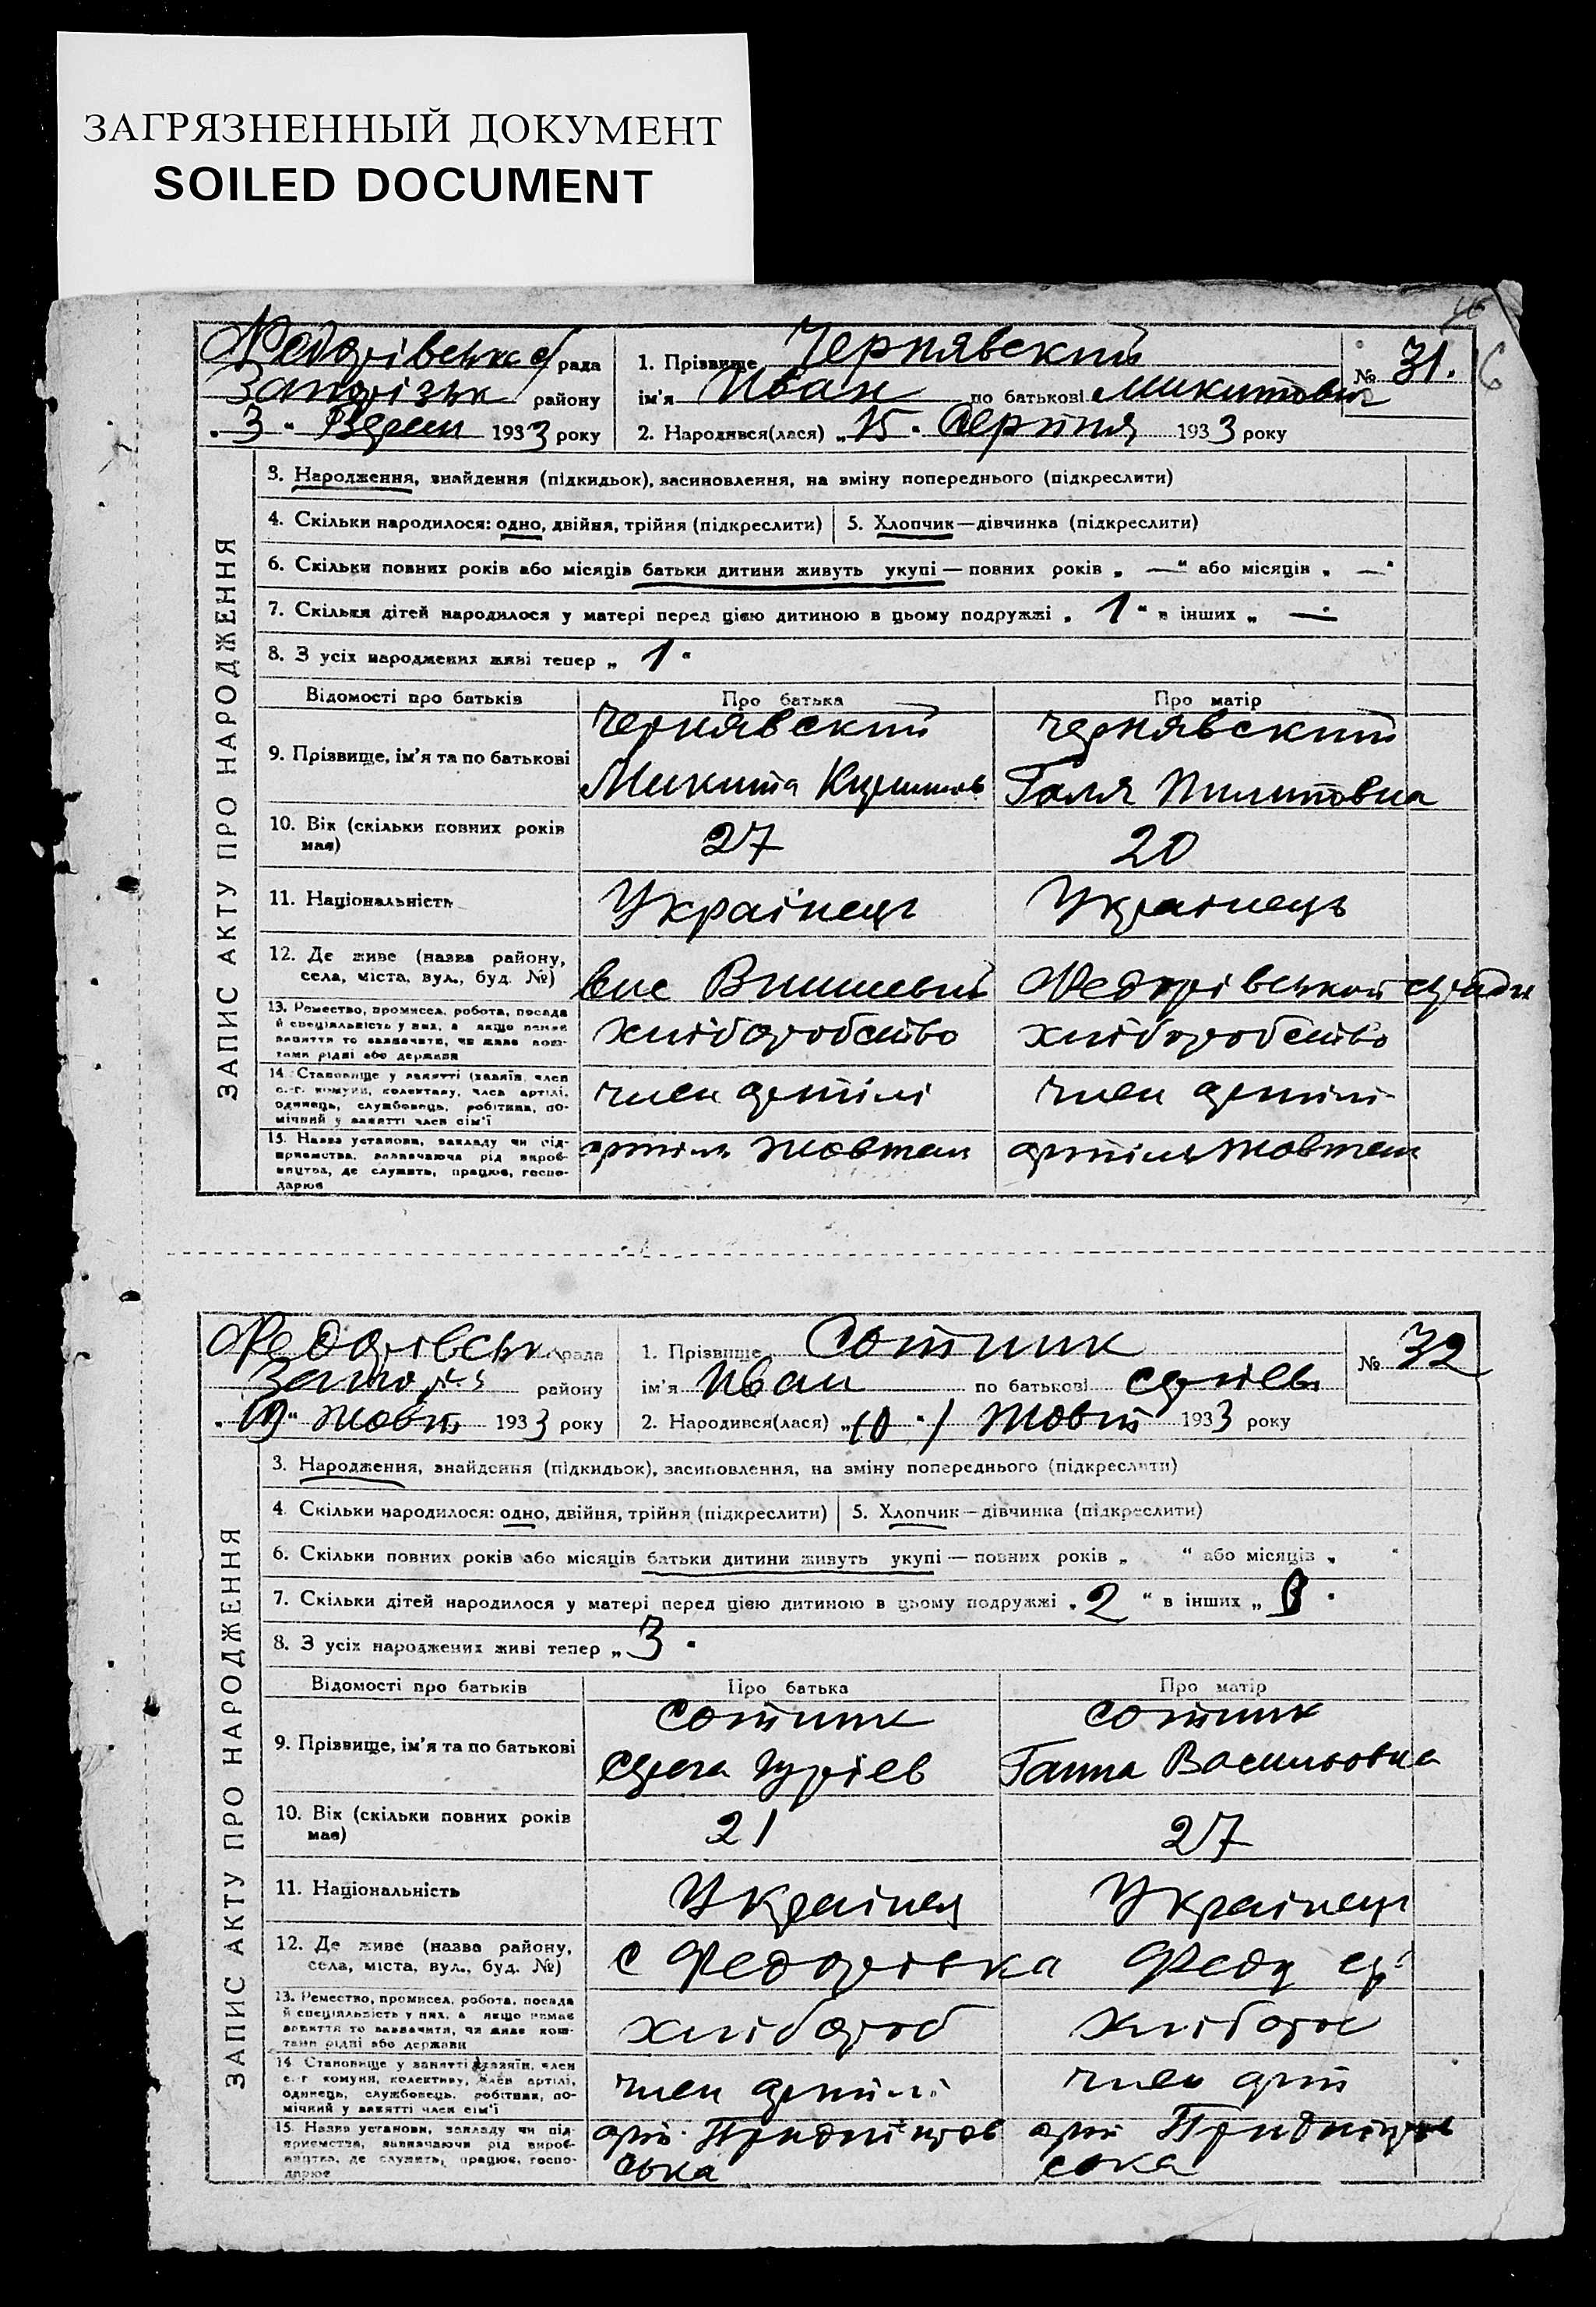 ЗАГРЯЗНЕННЫЙ ДОКУМЕНТ
SOILED DOCUMENT
Федорівська рада
Запорізьк району
„3“ Верес 1933 року
1. Прізвище Чернявский
ім'я Иван по батькові Микитович
2. Народився(лася) „15“ Серпня 1933 року
№ 31.
ЗАПИС АКТУ ПРО НАРОДЖЕННЯ
3. Народження, знайдення (підкидьок), засиновлення, на зміну попереднього (підкреслити)
4. Скільки народилося: одно, двійня, трійня (підкреслити) 5. Хлопчик—дівчинка (підкреслити)
6. Скільки повних років або місяців батьки дитини живуть укупі — повних років „ — “ або місяців „ — “
7. Скільки дітей народилося у матері перед цією дитиною в цьому подружжі „ 1 “ в інших „ — “
8. З усіх народжених живі тепер „ 1 “
Відомості про батьків Про батька Про матір
9. Прізвище, ім'я та по батькові
Чернявский Чернявский
Микита Галя Пилиповна
10. Вік (скільки повних років має) 27 20
11. Національність Українець Українець
12. Де живе (назва району, села, міста, вул., буд. №)
вис Вишневый Федорівськой с/ради
13. Ремество, промисел, робота, посада й спеціяльність у них, а якщо немає заняття то зазначити, чи живе коштами рідні або держави
хліборобство хліборобство
14. Становище у занятті (хазяїн, член с.-г. комуни, колективу, член артілі, одинець, службовець, робітник, помічний у занятті член сім'ї
член артілі член артілі
15. Назва установи, закладу чи підприємства, зазначаючи рід виробництва, де служить, працює, господарює
артіль Жовтен артіль Жовтен
Федорівськ рада
району
„10“ Жовт 1933 року
1. Прізвище Сотник
ім'я Иван по батькові Сергіев
2. Народився(лася) „10“ Жовт 1933 року
№ 32
ЗАПИС АКТУ ПРО НАРОДЖЕННЯ
3. Народження, знайдення (підкидьок), засиновлення, на зміну попереднього (підкреслити)
4. Скільки народилося: одно, двійня, трійня (підкреслити) 5. Хлопчик—дівчинка (підкреслити)
6. Скільки повних років або місяців батьки дитини живуть укупі — повних років „ “ або місяців „ “
7. Скільки дітей народилося у матері перед цією дитиною в цьому подружжі „ 2 “ в інших „ “
8. З усіх народжених живі тепер „ 3 “
Відомості про батьків Про батька Про матір
9. Прізвище, ім'я та по батькові
Сотник Сотник
Ганна Васильовна
10. Вік (скільки повних років має) 21 27
11. Національність Українец Українець
12. Де живе (назва району, села, міста, вул., буд. №)
с Федорівка Федор
13. Ремество, промисел, робота, посада й спеціяльність у них, а якщо немає заняття то зазначити, чи живе коштами рідні або держави
хлібороб хлібороб
14. Становище у занятті (хазяїн, член с.-г. комуни, колективу, член артілі, одинець, службовець, робітник, помічний у занятті член сім'ї
член артілі член арт
15. Назва установи, закладу чи підприємства, зазначаючи рід виробництва, де служить, працює, господарює
арт Придніпров арт Придніпров
ська ська